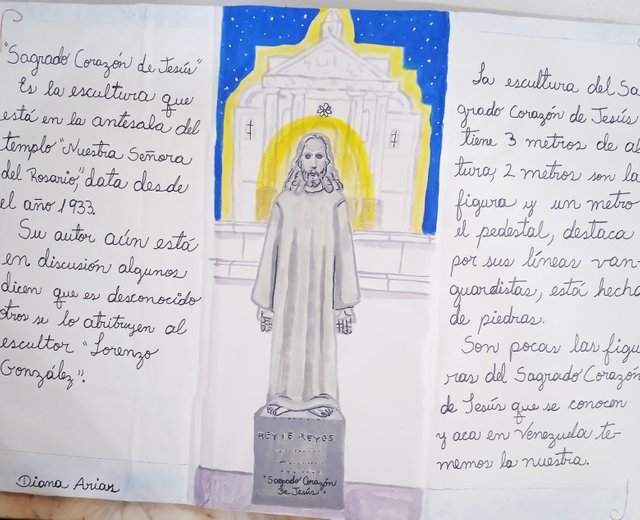 "Sagrado Corazón de Jesús"
Es la escultura que
está en la antesala del
templo "Nuestra Señora
del Rosario", data desde
el año 1933.
Su autor aún está
en discusión algunos
dicen que es desconocido
otros se lo atribuyen al
escultor "Lorenzo
González".
Diana Arias
REY DE REYES
"Sagrado Corazón
De Jesús"
La escultura del Sa
grado Corazón de Jesús
tiene 3 metros de al
tura, 2 metros son la
figura y un metro
el pedestal, destaca
por sus líneas van-
guardistas, está hecha
de piedras.
Son pocas las figu
ras del Sagrado Corazón
de Jesús que se conocen
y aca en Venezuela te-
nemos la nuestra.